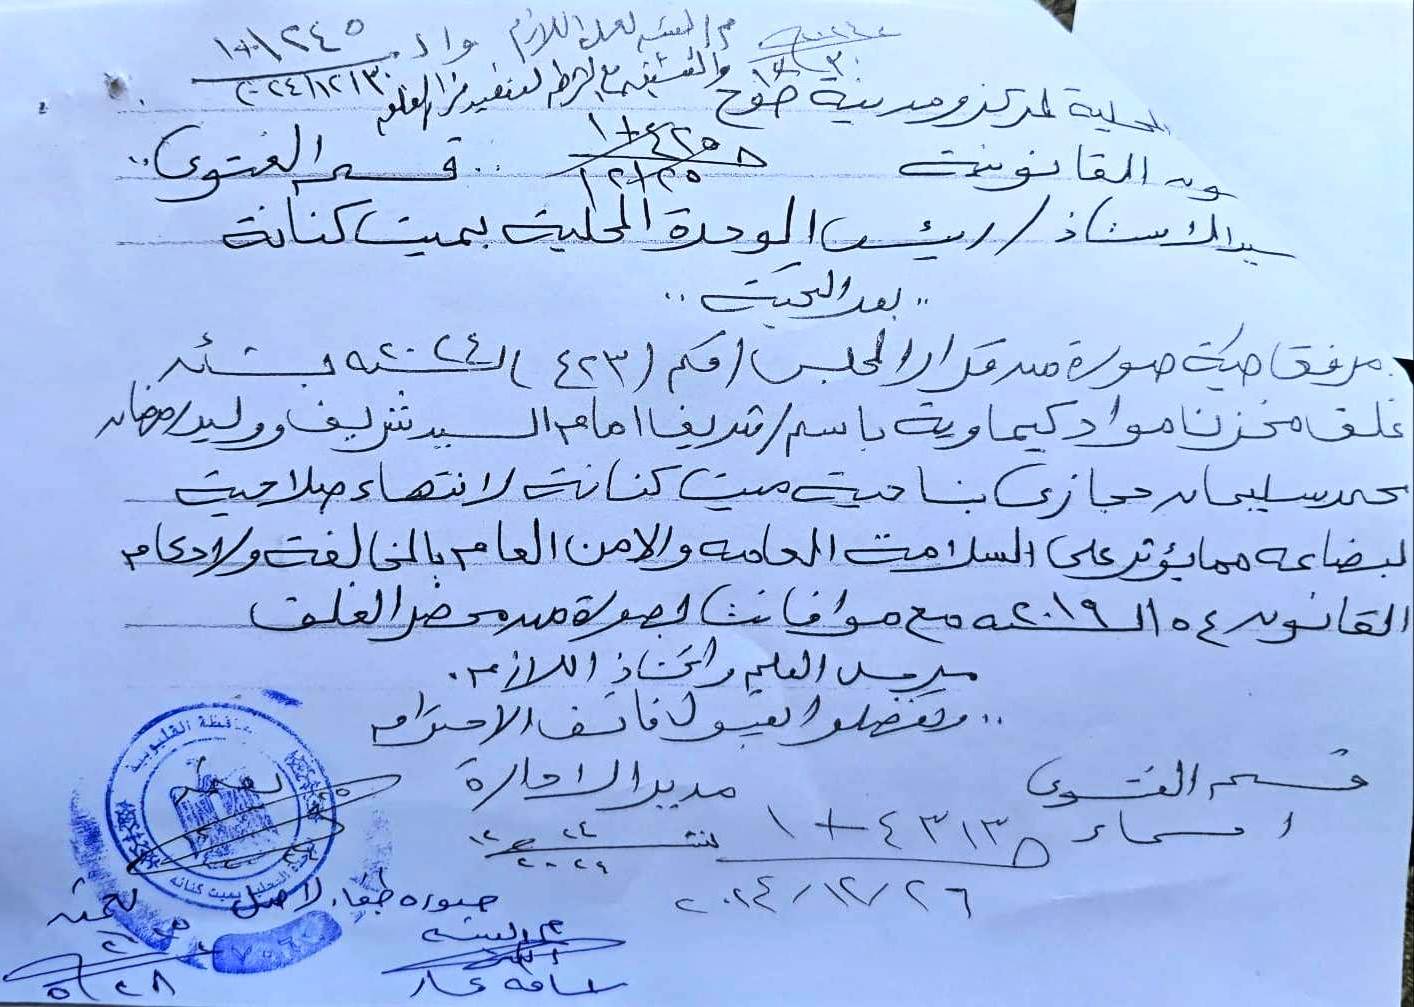 م التنظيم لعمل اللازم وارد ١+١٢٤٥
٢٠٢٤/١٢/٣٠
والتنسيق مع الشرطة لتنفيذ قرار الغلق
المحلية لمركز ومدينة طوخ
القانونية ١+٤٢٥ قسم الفتوى
١٢/٢٥
السيد الاستاذ / رئيس الوحدة المحلية بميت كنانة
بعد التحية ..
مرفق طية صورة من قرار المجلس رقم (٤٢٣) لسنة ٢٠٢٤ بشأن
غلق مخزن مواد كيماوية باسم / شريف امام السيد شريف ووليد رمضان
محمد سليمان حجازى بناحية ميت كنانة لانتهاء صلاحية
البضاعه مما يؤثر على السلامة العامه والامن العام بالمخالفة ولاحكام
القانون ١٥٤ لسنه ٢٠١٩ مع موافاتنا بصورة من محضر الغلق
برجاء العلم واتخاذ اللازم .
.. وتفضلوا بقبول فائق الاحترام
قسم الفتوى مدير الادارة يعتمد
اسماء
١+٤٣١٣
٢٠٢٤/١٢/٢٦
محافظة القليوبية
الوحدة المحلية بميت كنانه
صوره طبقا لاصل
م التنظيم